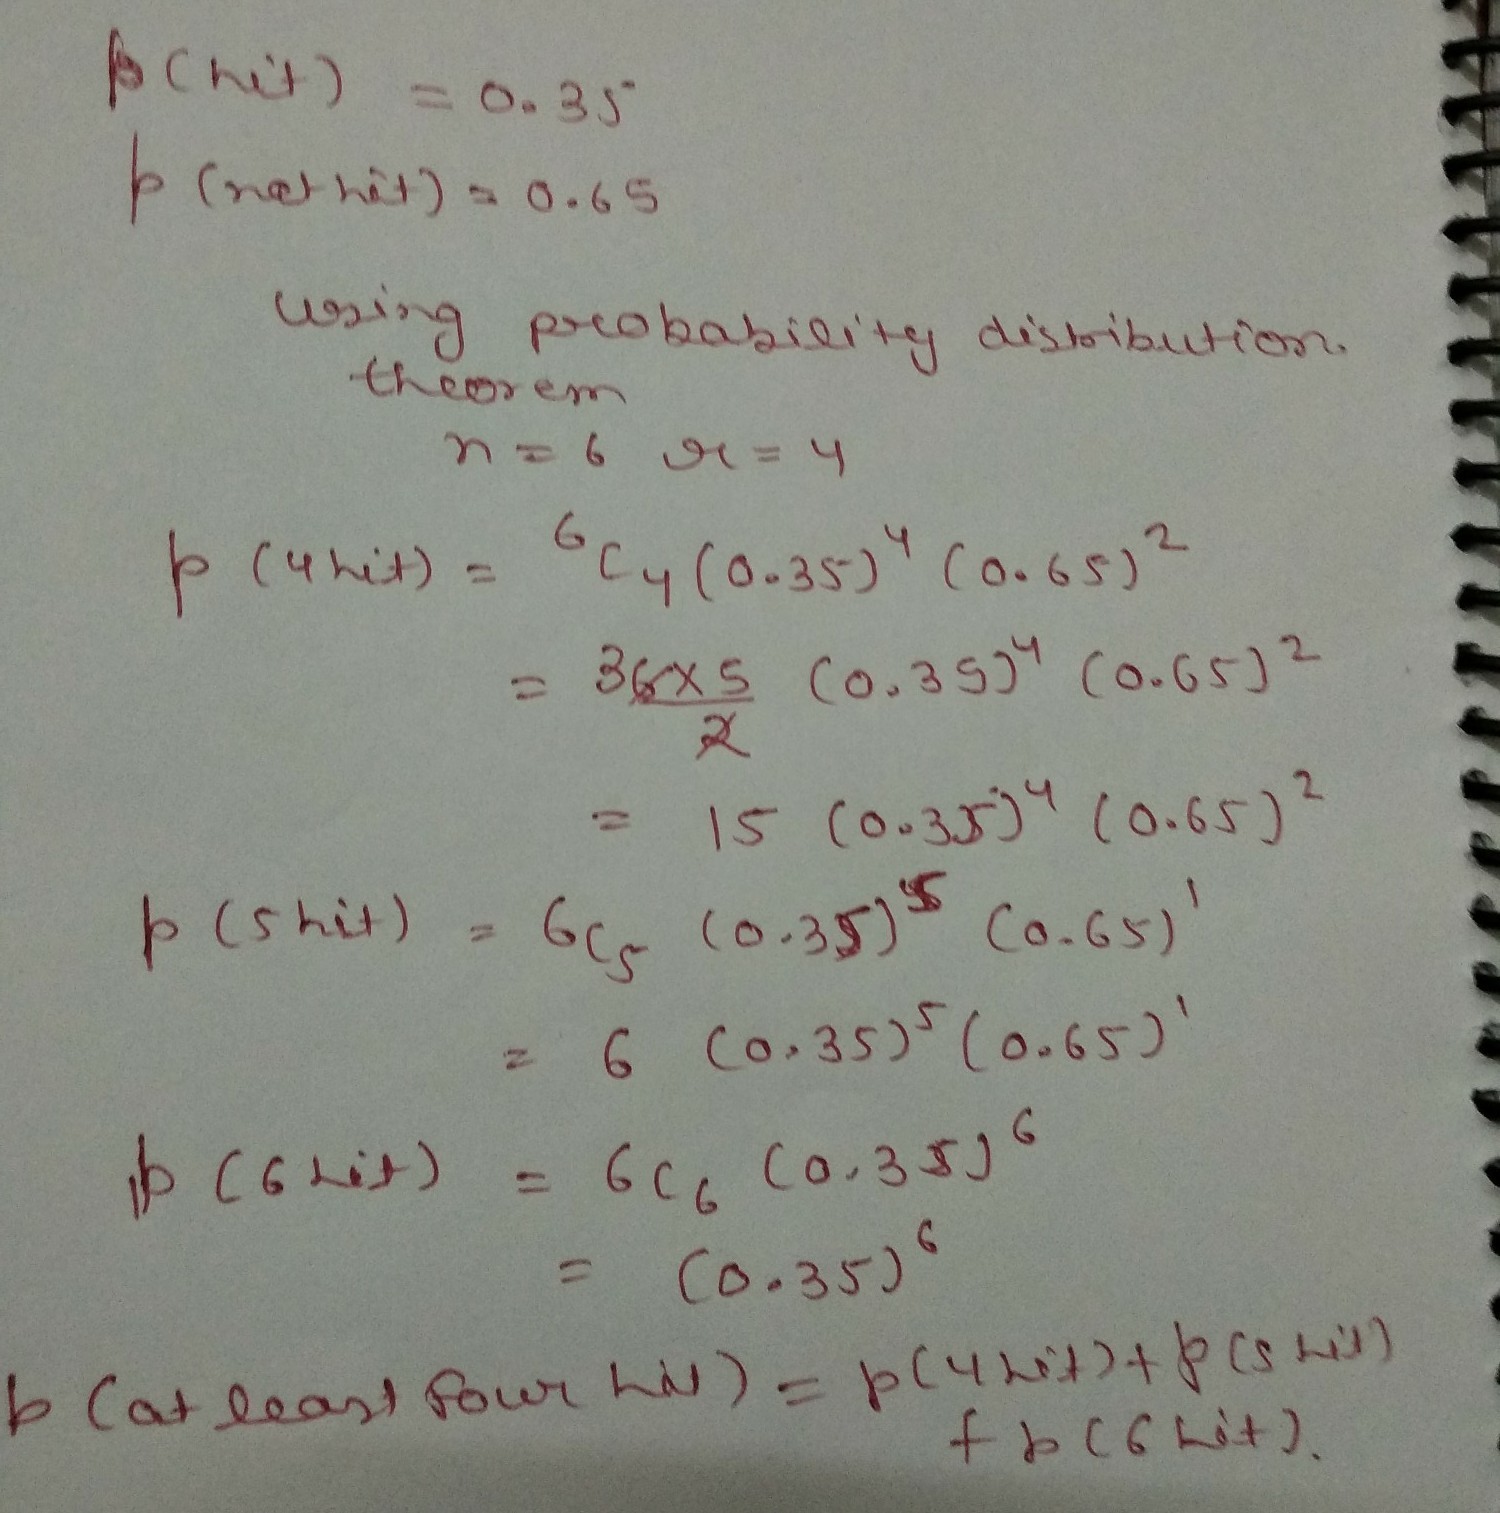 p(hit) = 0.35
p(not hit) = 0.65
using probability distribution.
theorem
n = 6 r = 4
p(4 hit) = ⁶C₄(0.35)⁴(0.65)²
= 36×5/2 (0.35)⁴(0.65)²
= 15 (0.35)⁴(0.65)²
p(5 hit) = 6C₅ (0.35)⁵ (0.65)¹
= 6 (0.35)⁵(0.65)¹
p(6 hit) = 6C₆ (0.35)⁶
= (0.35)⁶
p(at least four hit) = p(4 hit)+p(5 hit)
+ p(6 hit).